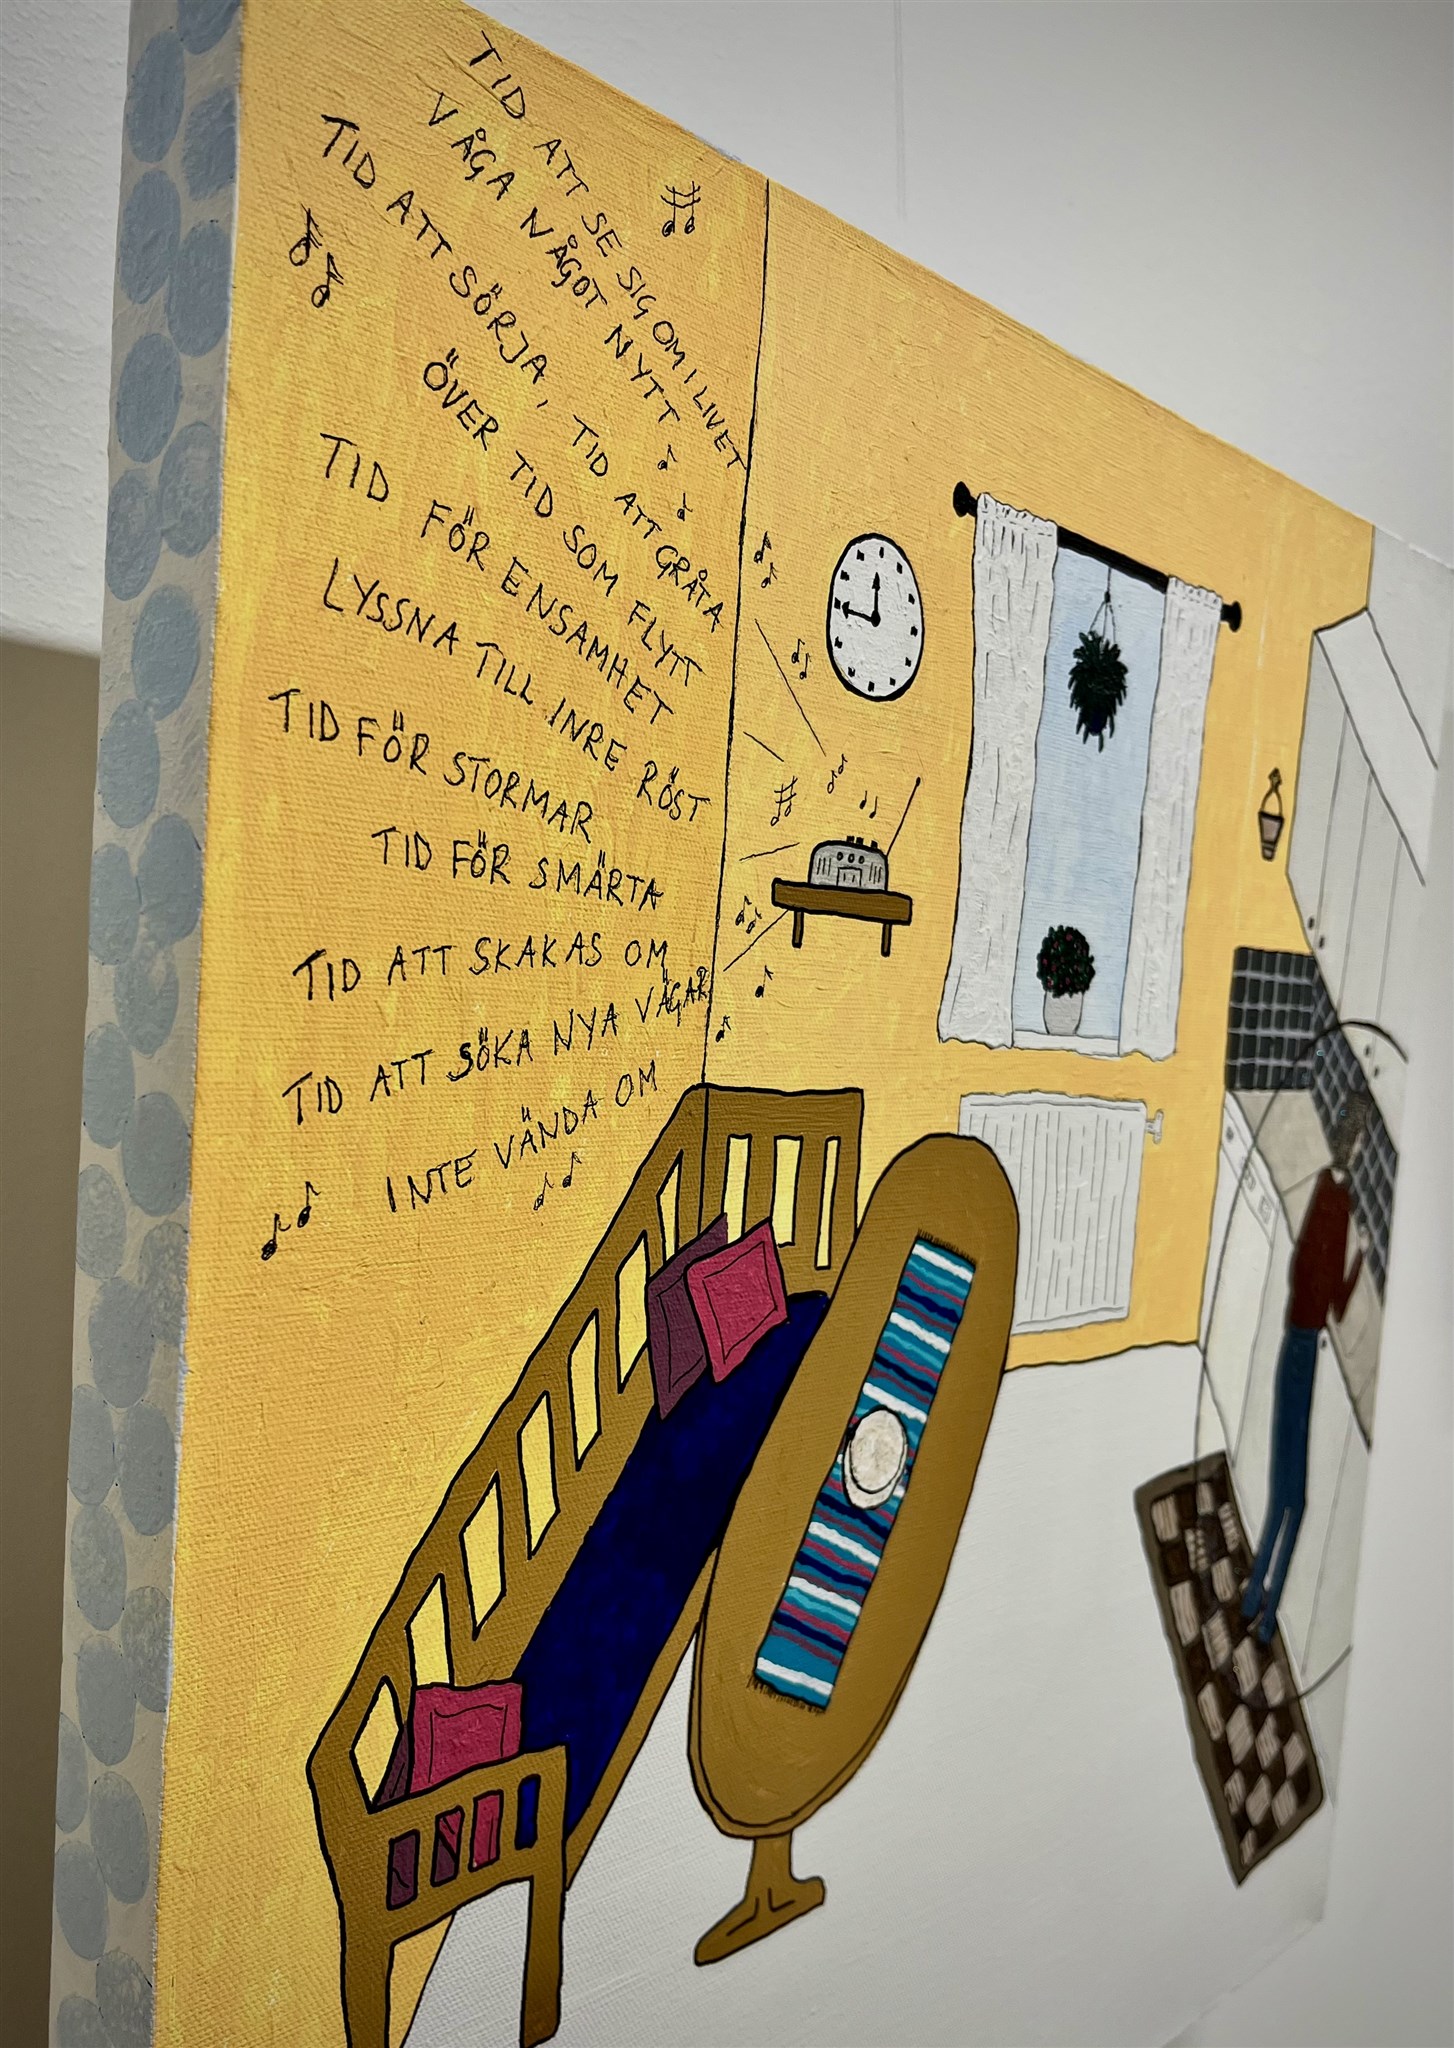 TID ATT SE SIG OM I LIVET
VÅGA NÅGOT NYTT
TID ATT SÖRJA, TID ATT GRÅTA
ÖVER TID SOM FLYTT
TID FÖR ENSAMHET
LYSSNA TILL INRE RÖST
TID FÖR STORMAR
TID FÖR SMÄRTA
TID ATT SKAKAS OM
TID ATT SÖKA NYA VÄGAR
INTE VÄNDA OM